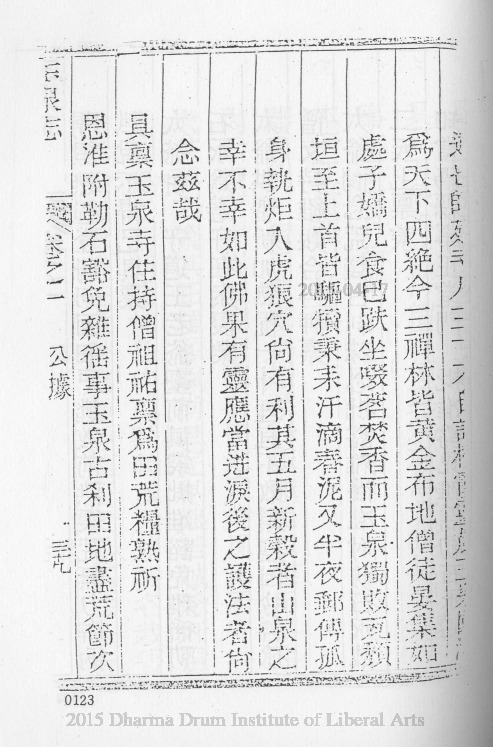 為天下四絶今三禪林皆黄金布地僧徒晏集如
處子嬌兒食已趺坐啜茗焚香而玉泉獨敗瓦頽
垣至上首皆驅犢秉耒汗滴春泥又半夜郵傳孤
身執炬入虎狼穴尚有利其五月新穀者山泉之
幸不幸如此佛果有靈應當迸淚後之護法者尚
念茲哉
具稟玉泉寺住持僧祖祐稟為田荒糧熟祈
恩准附勒石豁免雜徭事玉泉古刹田地盡荒節次
玉泉志
卷之一
公據
三九
0123
2015 Dharma Drum Institute of Liberal Arts